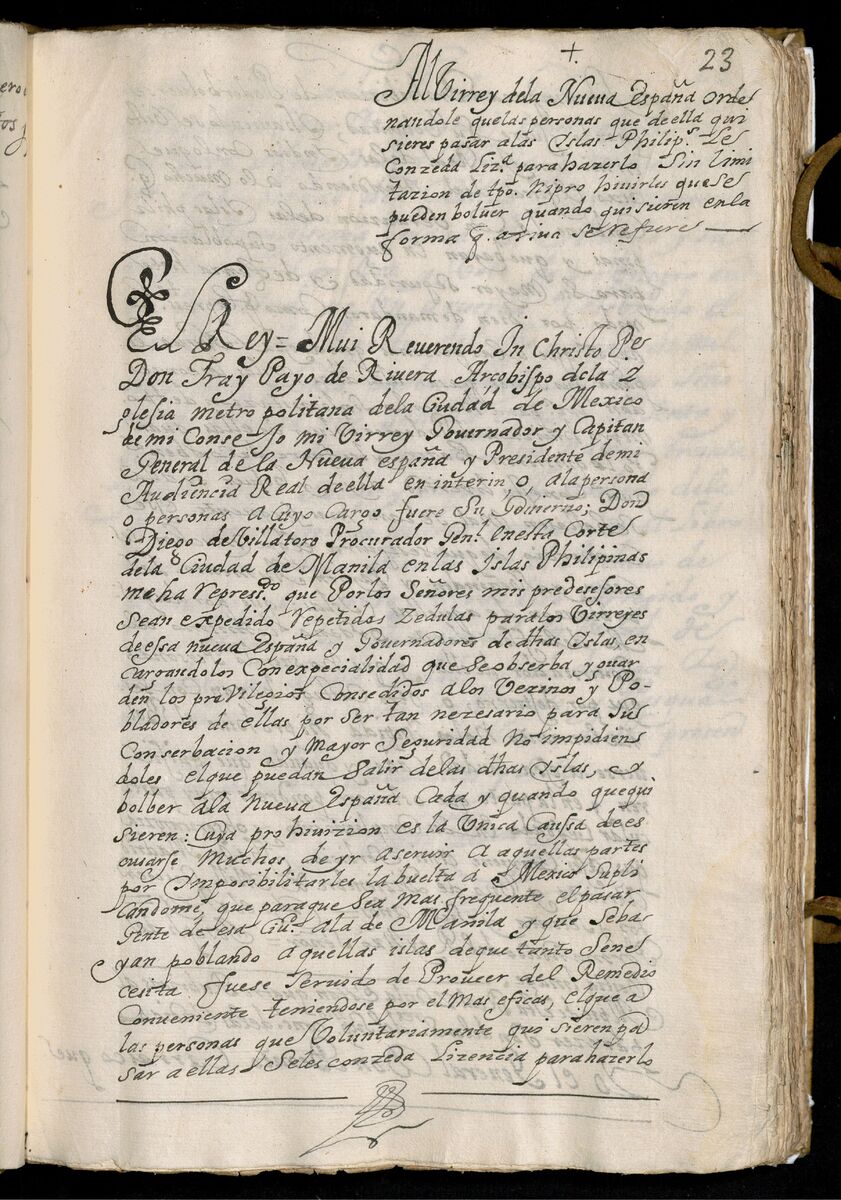 23
+
Al Virrey dela Nueva españa orde
nandole quelas personas que de ella qui
sieres pasar alas Yslas Philip.s Les
Conzeda Liz.a para hazerlo Sin limi
tazion de tpo. Nipro hivirles que se
pueden boluer quando quisieren en la
forma q. arriua se refiere
El Rey = Mui Reuerendo In Christo Pe
Don Fray Payo de Riuera Arcobispo dela Y
glesia metropolitana dela Ciudad de Mexico
de mi Conse Jo mi Virrey Gouernador y Capitan
General de la Nueva españa y Presidente demi
Audiencia Real de ella en interin o, ala persona
o personas a Cuyo Cargo fuere Su Gouierno; Don
Diego de Villatoro Procurador Gen.l enesta Corte
dela Ciudad de Manila en las Islas Philipinas
meha repress.do que Porlos Señores mis predesesores
Sean expedido repetidos Zedulas paralos Virreyes
de essa nueva España y Gouernadores de dhas Yslas, en
cargandolos Con expecialidad que se obserba y guar
den los preVilegios Consedidos a los Vezinos y Po-
bladores de ellas por ser tan nezesario para Sus
Conserbacion y Mayor Seguridad No impidien
doles elque puedan Salir de las dhas Yslas, y
bolber ala Nueva España Cada y quando quequi
sieren: Cuya prohivizion es la Unica Caussa de es
cusarse Muchos de yr aseruir a aquellas partes
por Imposibilitarles la buelta a Mexico Supli
Candome que paraque Sea mas frequente el pasar
Gente de esa Ciu.d ala de Manila y que se ba
yan poblando aquellas islas deque tanto Sene
cesita fuese Seruido de Proueer del Remedio
Conveniente teniendose por el Mas eficas, elque a
las personas que Voluntariamente quisieren pa
sar a ellas Seles conzeda Lizencia para hazerlo